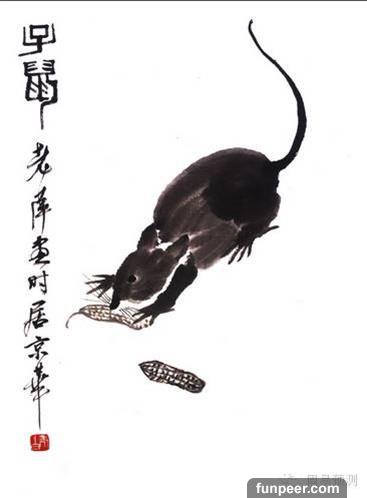 子鼠
老萍画时居京华
funpeer.com